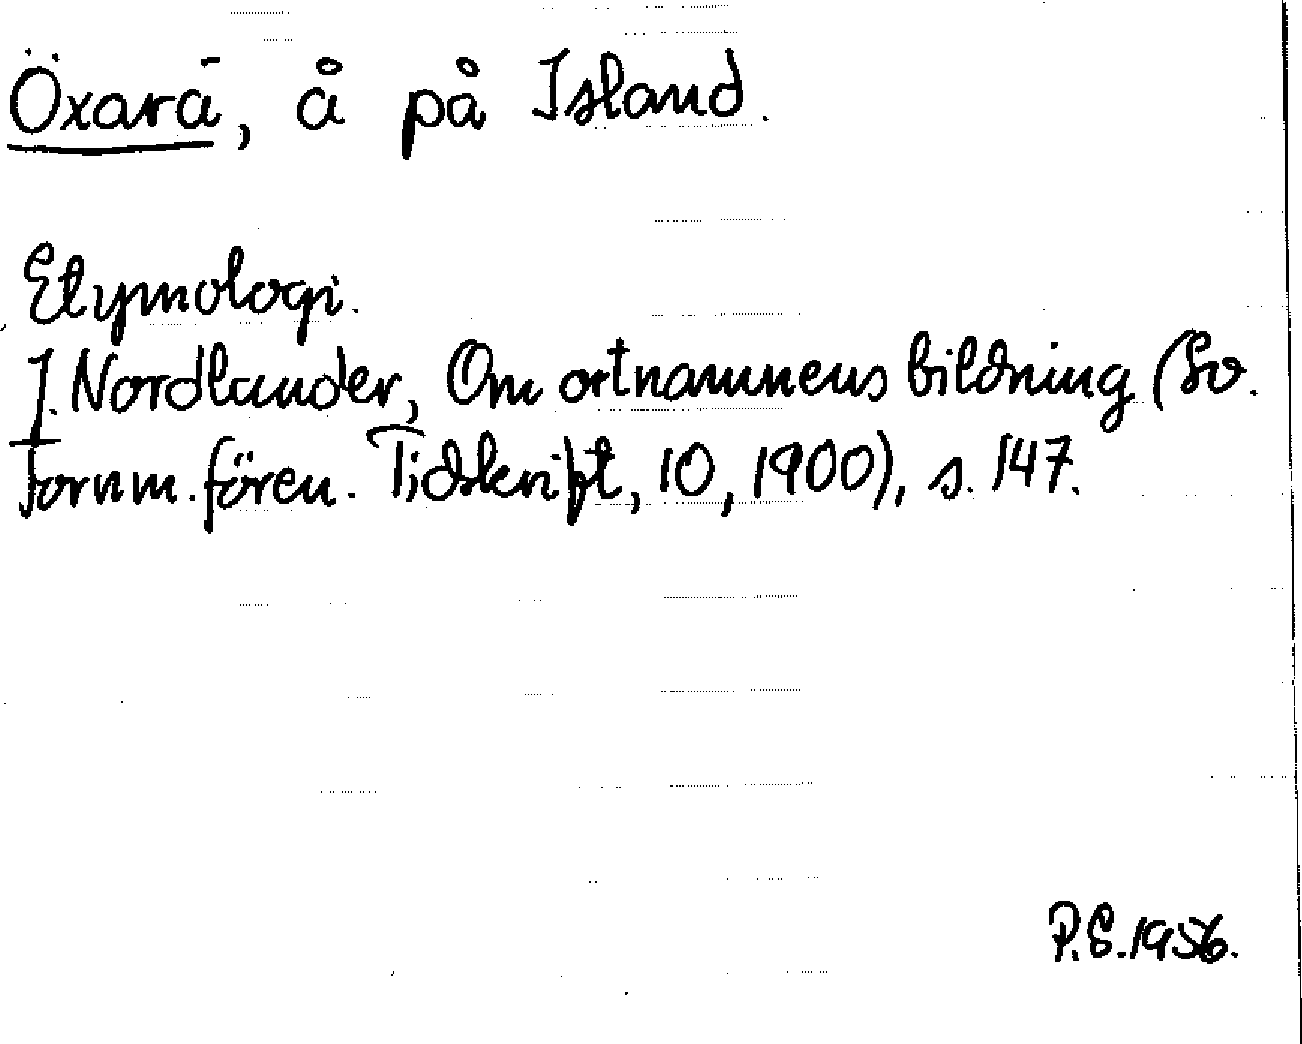 Öxarā, å på Island.
Etymologi.
J. Nordlander, Om ortnamnens bildning (Sv.
Fornm. fören. Tidskrift, 10, 1900), s. 147.
P.S. 1956.